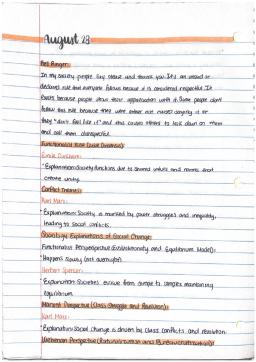 August 23
Bell Ringer:
In my society people say please and thank you. It's an unsaid or
declared rule that everyone follows because it is considered respectful. It
exists because people show their appreciation with it. Some people don't
follow this rule because they were either not raised saying it or
they "don't feel like it" and this causes others to look down on them
and call them disrespectful.
Functionalist View
Emile Durkheim:
Explanation: Society functions due to shared values and norms that
create unity.
Conflict Theories
Karl Marx:
Explanation: Society is marked by power struggles and inequality,
leading to social conflicts.
Sociology Explanations of Social Change:
Functionalist Perspective (Evolutionary and Equilibrium Model):
Happens slowly (not overnight)
Herbert Spencer:
Explanation: Societies evolve from simple to complex maintaining
equilibrium
Marxist Perspective (Class Struggle and Revolution):
Karl Marx:
Explanation: Social Change is driven by class conflicts and revolution
Weberian Perspective (Rationalization and Bureaucratization):